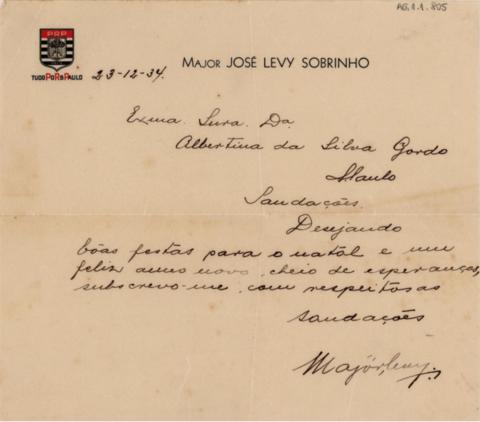 AG.1.1.805
PRP
TUDO PoR S. PAULO
MAJOR JOSÉ LEVY SOBRINHO
23-12-34.
Exma. Snra. Da.
Albertina da Silva Gordo
S. Paulo
Saudações.
Desejando
bôas festas para o natal e um
feliz anno novo, cheio de esperanças,
subscrevo-me, com respeitosas
saudações
Major Levy.